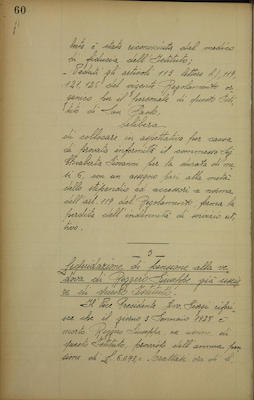 60
lute è stato riconosciuto dal medico
di fiducia dell'Istituto;
- Veduti gli articoli 113 lettera b), 119,
121, 125 del vigente Regolamento or-
ganico per il personale di questo Isti-
tuto di San Paolo,
delibera
di collocare in aspettativa per causa
di provata infermità il commesso Sig.
Giovanni per la durata di me-
si 6, con un assegno pari alla metà
dello stipendio ed accessori a norma
dell'art. 119 del Regolamento ferma la
perdita dell'indennità di servizio at-
tivo.
3
Liquidazione di pensione alla ve-
dova di Giuseppe già
di questo Istituto.
Il Vice Presidente Avv. riferi-
sce che il giorno 3 Gennaio 1928 è
morto Giuseppe, ex
questo Istituto, provvisto dell'annua pen-
sione di £ 6.093,= di